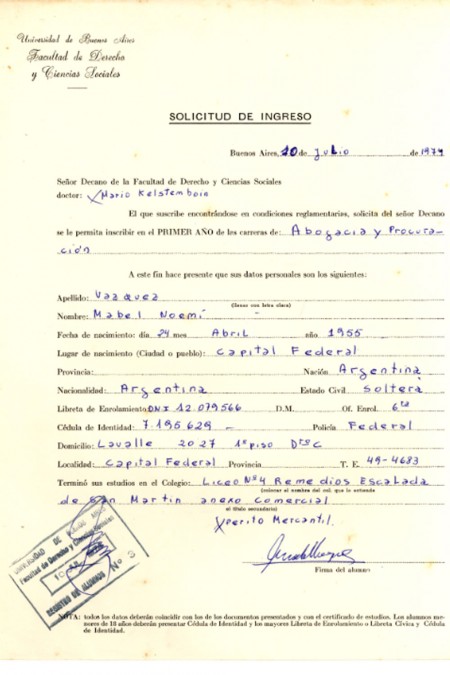 Universidad de Buenos Aires
Facultad de Derecho
y Ciencias Sociales
SOLICITUD DE INGRESO
Buenos Aires, 10 de Julio de 1974
Señor Decano de la Facultad de Derecho y Ciencias Sociales
doctor: Mario Kelstemboin
El que suscribe encontrándose en condiciones reglamentarias, solicita del señor Decano
se le permita inscribir en el PRIMER AÑO de las carreras de: Abogacia y Procura-
ción
A este fin hace presente que sus datos personales son los siguientes:
Apellido: Vazquez
(llenar con letra clara)
Nombre: Mabel Noemí
Fecha de nacimiento: día 24 mes Abril año 1955
Lugar de nacimiento (Ciudad o pueblo): Capital Federal
Provincia: Nación Argentina
Nacionalidad: Argentina Estado Civil soltera
Libreta de Enrolamiento DNI 12.079.566 D.M. Of. Enrol. 6ta
Cédula de Identidad: 7.195.629 - Policía Federal
Domicilio: Lavalle 2027 1º piso Dto C
Localidad: Capital Federal Provincia T. E. 49-4683
Terminó sus estudios en el Colegio: Liceo Nº4 Remedios Escalada
de San Martin anexo comercial
el título secundario)
Perito Mercantil.
Firma del alumno
UNIVERSIDAD DE BUENOS AIRES
Facultad de Derecho y Ciencias Sociales
REGISTRO DE ALUMNOS Nº 3
NOTA: todos los datos deberán coincidir con los de los documentos presentados y con el certificado de estudios. Los alumnos me-
nores de 18 años deberán presentar Cédula de Identidad y los mayores Libreta de Enrolamiento o Libreta Cívica y Cédula
de Identidad.